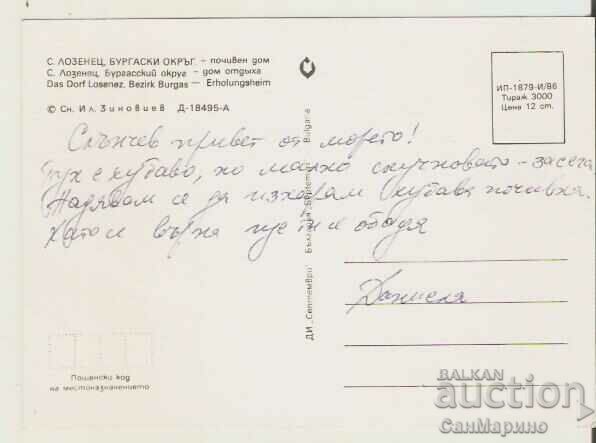 С. ЛОЗЕНЕЦ, БУРГАСКИ ОКРЪГ – почивен дом
С. Лозенец, Бургасский округ – дом отдыха
Das Dorf Losenez, Bezirk Burgas – Erholungsheim
© Сн. Ил. Зиновиев Д-18495-А
ИП-1879-И/86
Тираж 3000
Цена 12 ст.
Слънчев привет от морето!
Тук е хубаво, но малко скучновато – засега.
Надявам се да изкарам хубава почивка.
Като се върна ще ти се обадя
Даниела
ДИ „Септември" България
Bulgaria
Пощенски код
на местоназначението
BALKAN
auction
СанМарино